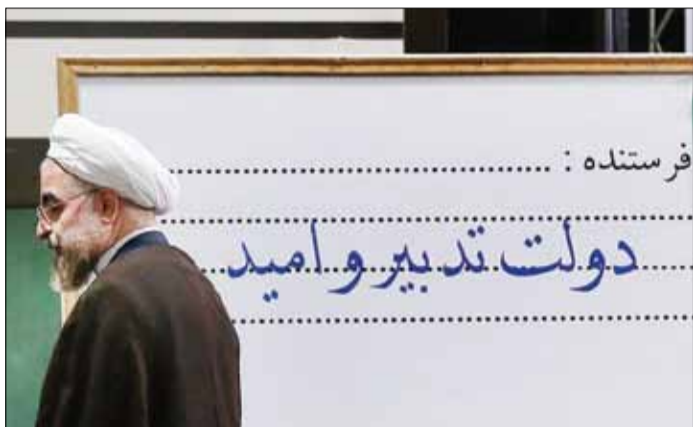 فرستنده : ........................................
دولت تدبیر و امید